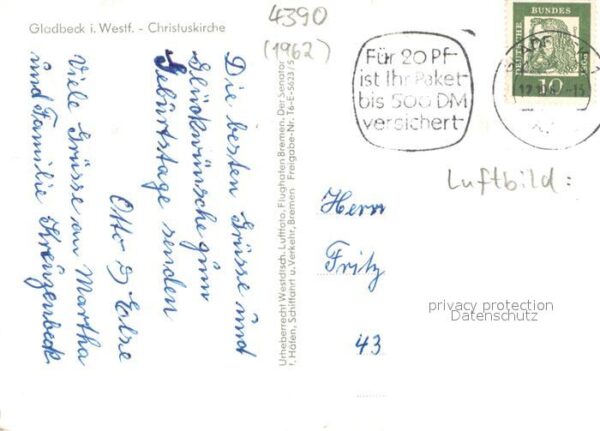 Gladbeck i. Westf. - Christuskirche
4390
(1962)
Für 20 Pf
ist Ihr Paket
bis 500 DM
versichert
DEUTSCHE BUNDESPOST
10
Luftbild:
Die besten Grüsse und
Glückwünsche zum
Geburtstage senden
Otto u Else
Viele Grüsse an Martha
und Familie Kreuzenbeck
Urheberrecht Westdtsch. Luftfoto, Flughafen Bremen. Der Senator
f. Häfen, Schiffahrt u. Verkehr, Bremen Freigabe-Nr. T6-E-5623/5
Herrn
Fritz
43
privacy protection
Datenschutz